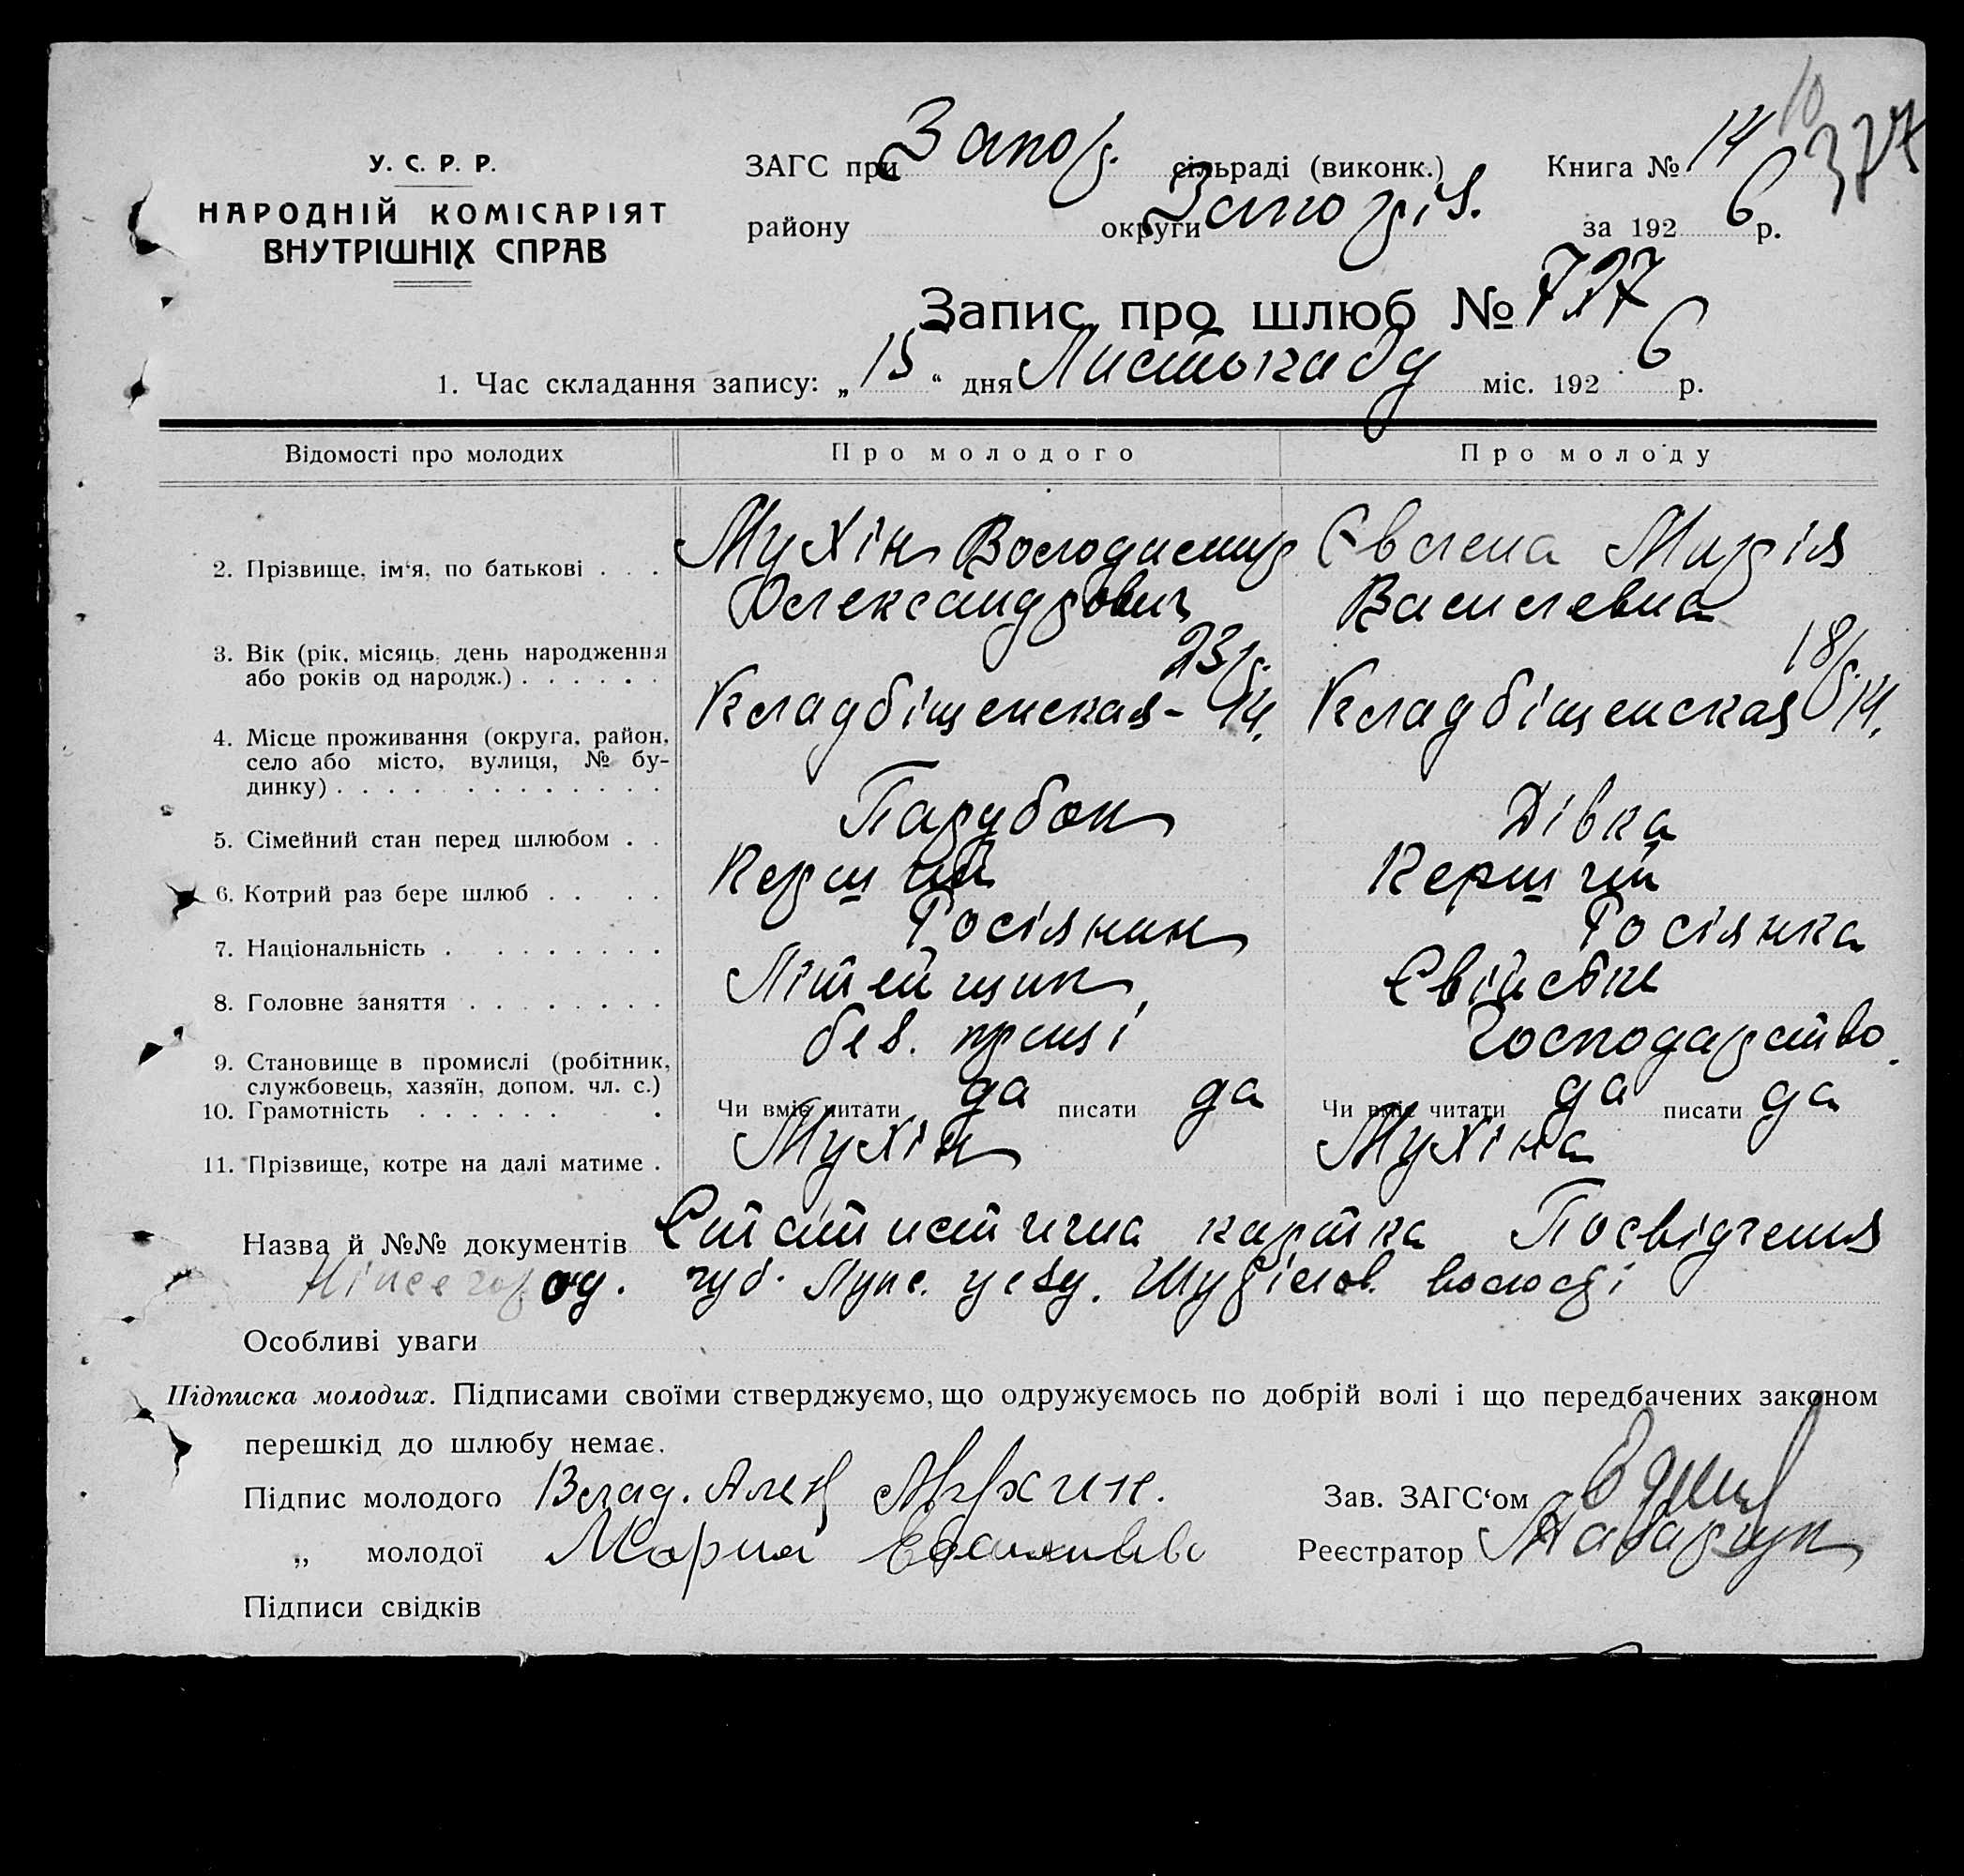 10
У. С. Р. Р.
НАРОДНІЙ КОМІСАРІЯТ
ВНУТРІШНІХ СПРАВ
ЗАГС при Запор. сільраді (виконк.) Книга № 14 327
району округи Запоріз. за 192 6 р.
Запис про шлюб № 727
1. Час складання запису: „ 15 “ дня Листопаду міс. 192 6 р.
Відомості про молодих Про молодого Про молоду
2. Прізвище, ім‘я, по батькові . . . Мухін Володимир Марія
Олександрович Василевна
3. Вік (рік, місяць, день народження 23 р. 18 р.
або років од народж.) . . . . . .
Кладбіщенская - 14. Кладбіщенская 14.
4. Місце проживання (округа, район,
село або місто, вулиця, № бу-
динку) . . . . . . . . . . . . .
5. Сімейний стан перед шлюбом . . Парубок Дівка
6. Котрий раз бере шлюб . . . . Перший Перший
7. Національність . . . . . . . . Росіянин Росіянка
8. Головне заняття . . . . . . . . Літейщик, Свійске
без. праці господарство.
9. Становище в промислі (робітник,
службовець, хазяїн, допом. чл. с.)
10. Грамотність . . . . . . . . Чи вміє читати да писати да Чи вміє читати да писати да
11. Прізвище, котре на далі матиме . Мухін Мухіна
Назва й №№ документів Статистична картка Посвідчення
губ. уезду. волості
Особливі уваги
Підписка молодих. Підписами своїми стверджуємо, що одружуємось по добрій волі і що передбачених законом
перешкід до шлюбу немає.
Підпис молодого Влад. Алек Мухин. Зав. ЗАГС‘ом
„ молодої Мария Реєстратор
Підписи свідків